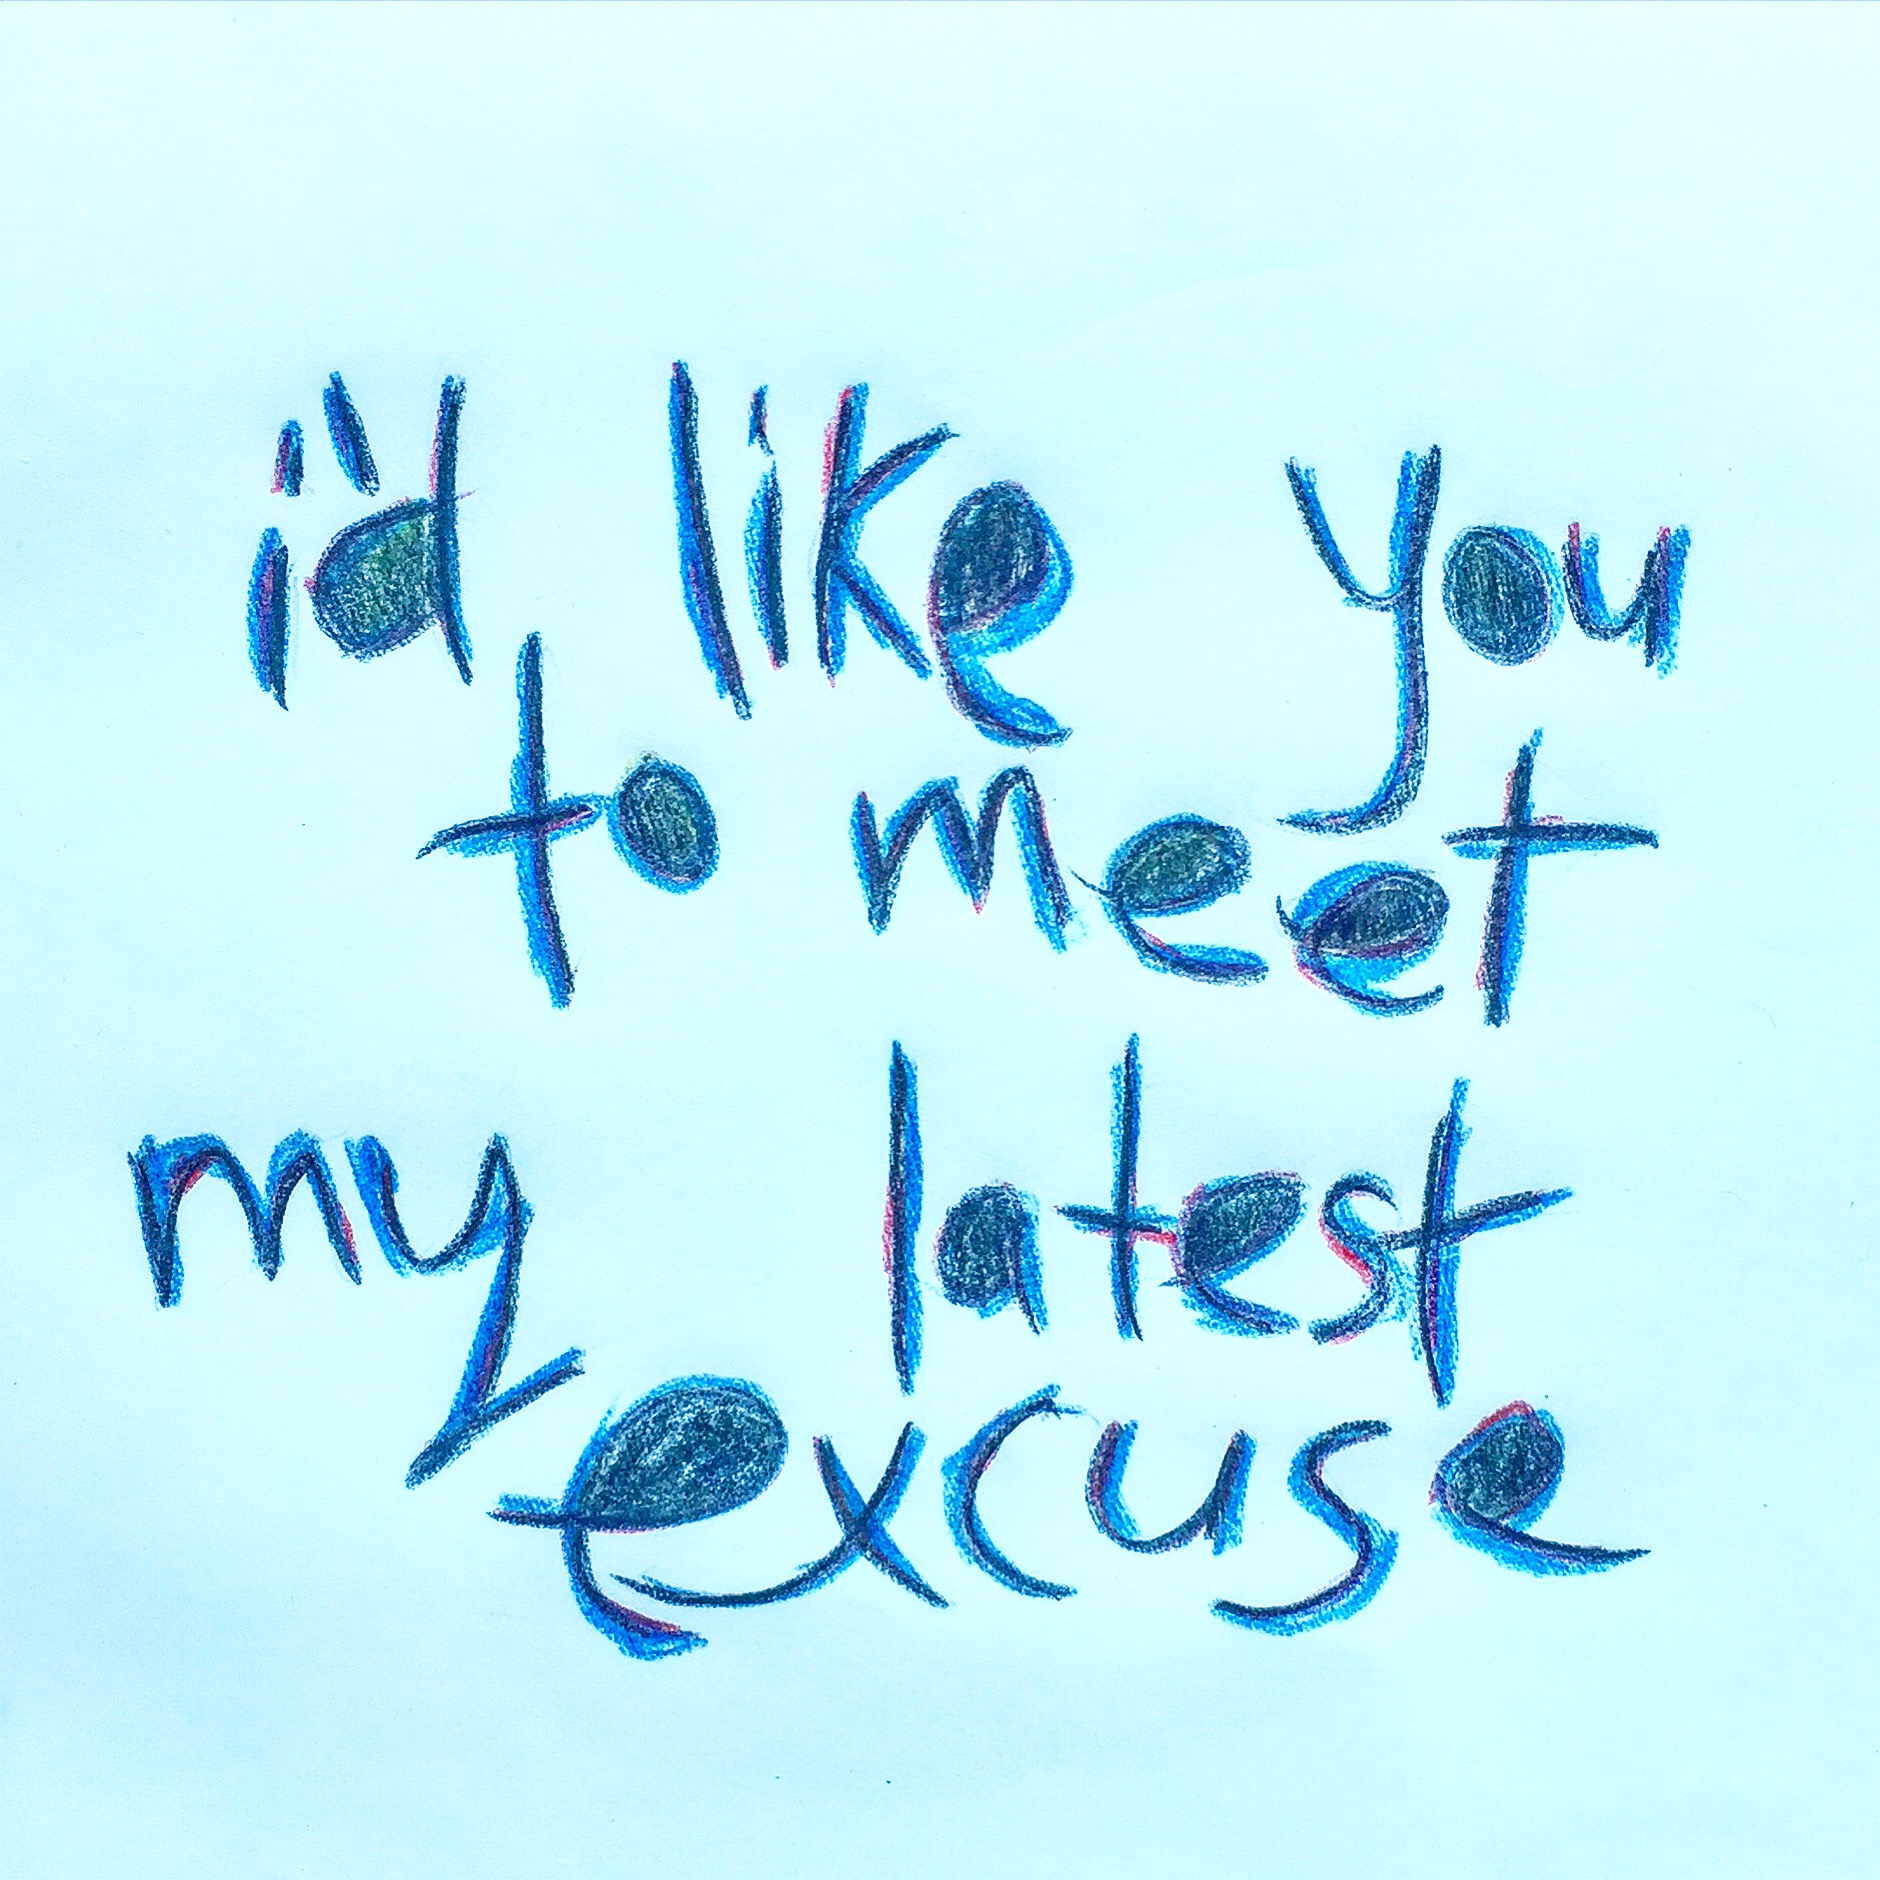 i'd like you
to meet
my latest
excuse